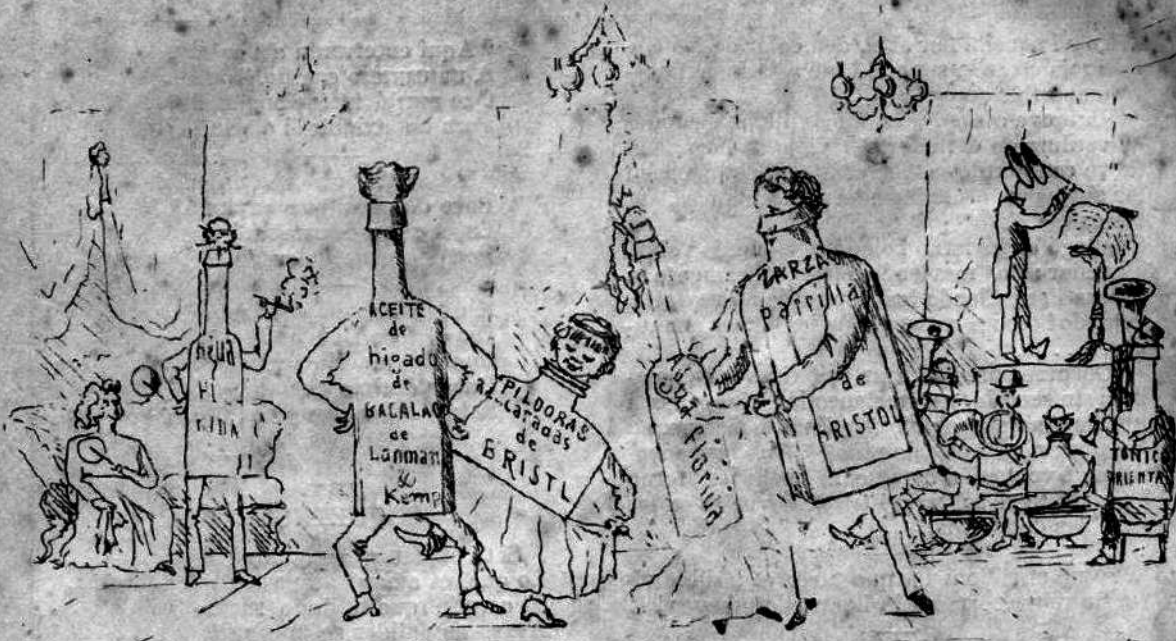 ACEITE
de
higado
de
BACALAO
de
Lanman
&
Kemp
PILDORAS
azucaradas
de
BRISTL
Agua
florida
ZARZA
parrilla
de
BRISTOL
TONICO
ORIENTAL